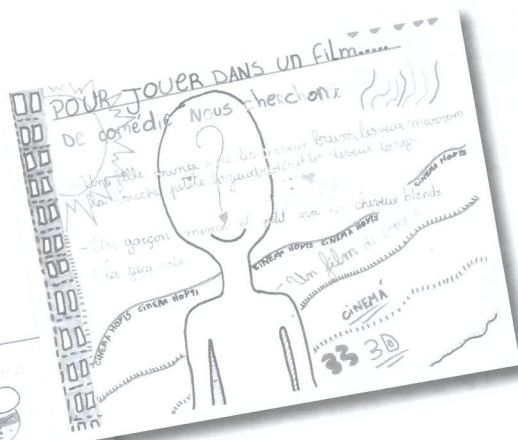 POUR JOUER DANS UN FILM......
De comédie NOUS cherchons:
- Une fille mince avec les cheveux bruns, les yeux marrons
la bouche petite, les yeux et les cheveux longs
- Un garçon mince et petit avec les cheveux blonds
et les yeux verts
CINEMA HOYTS
CINEMA HOYTS CINEMA HOYTS
CINEMA HOYTS CINEMA HOYTS
- Un film de
CINEMÁ
33 3D